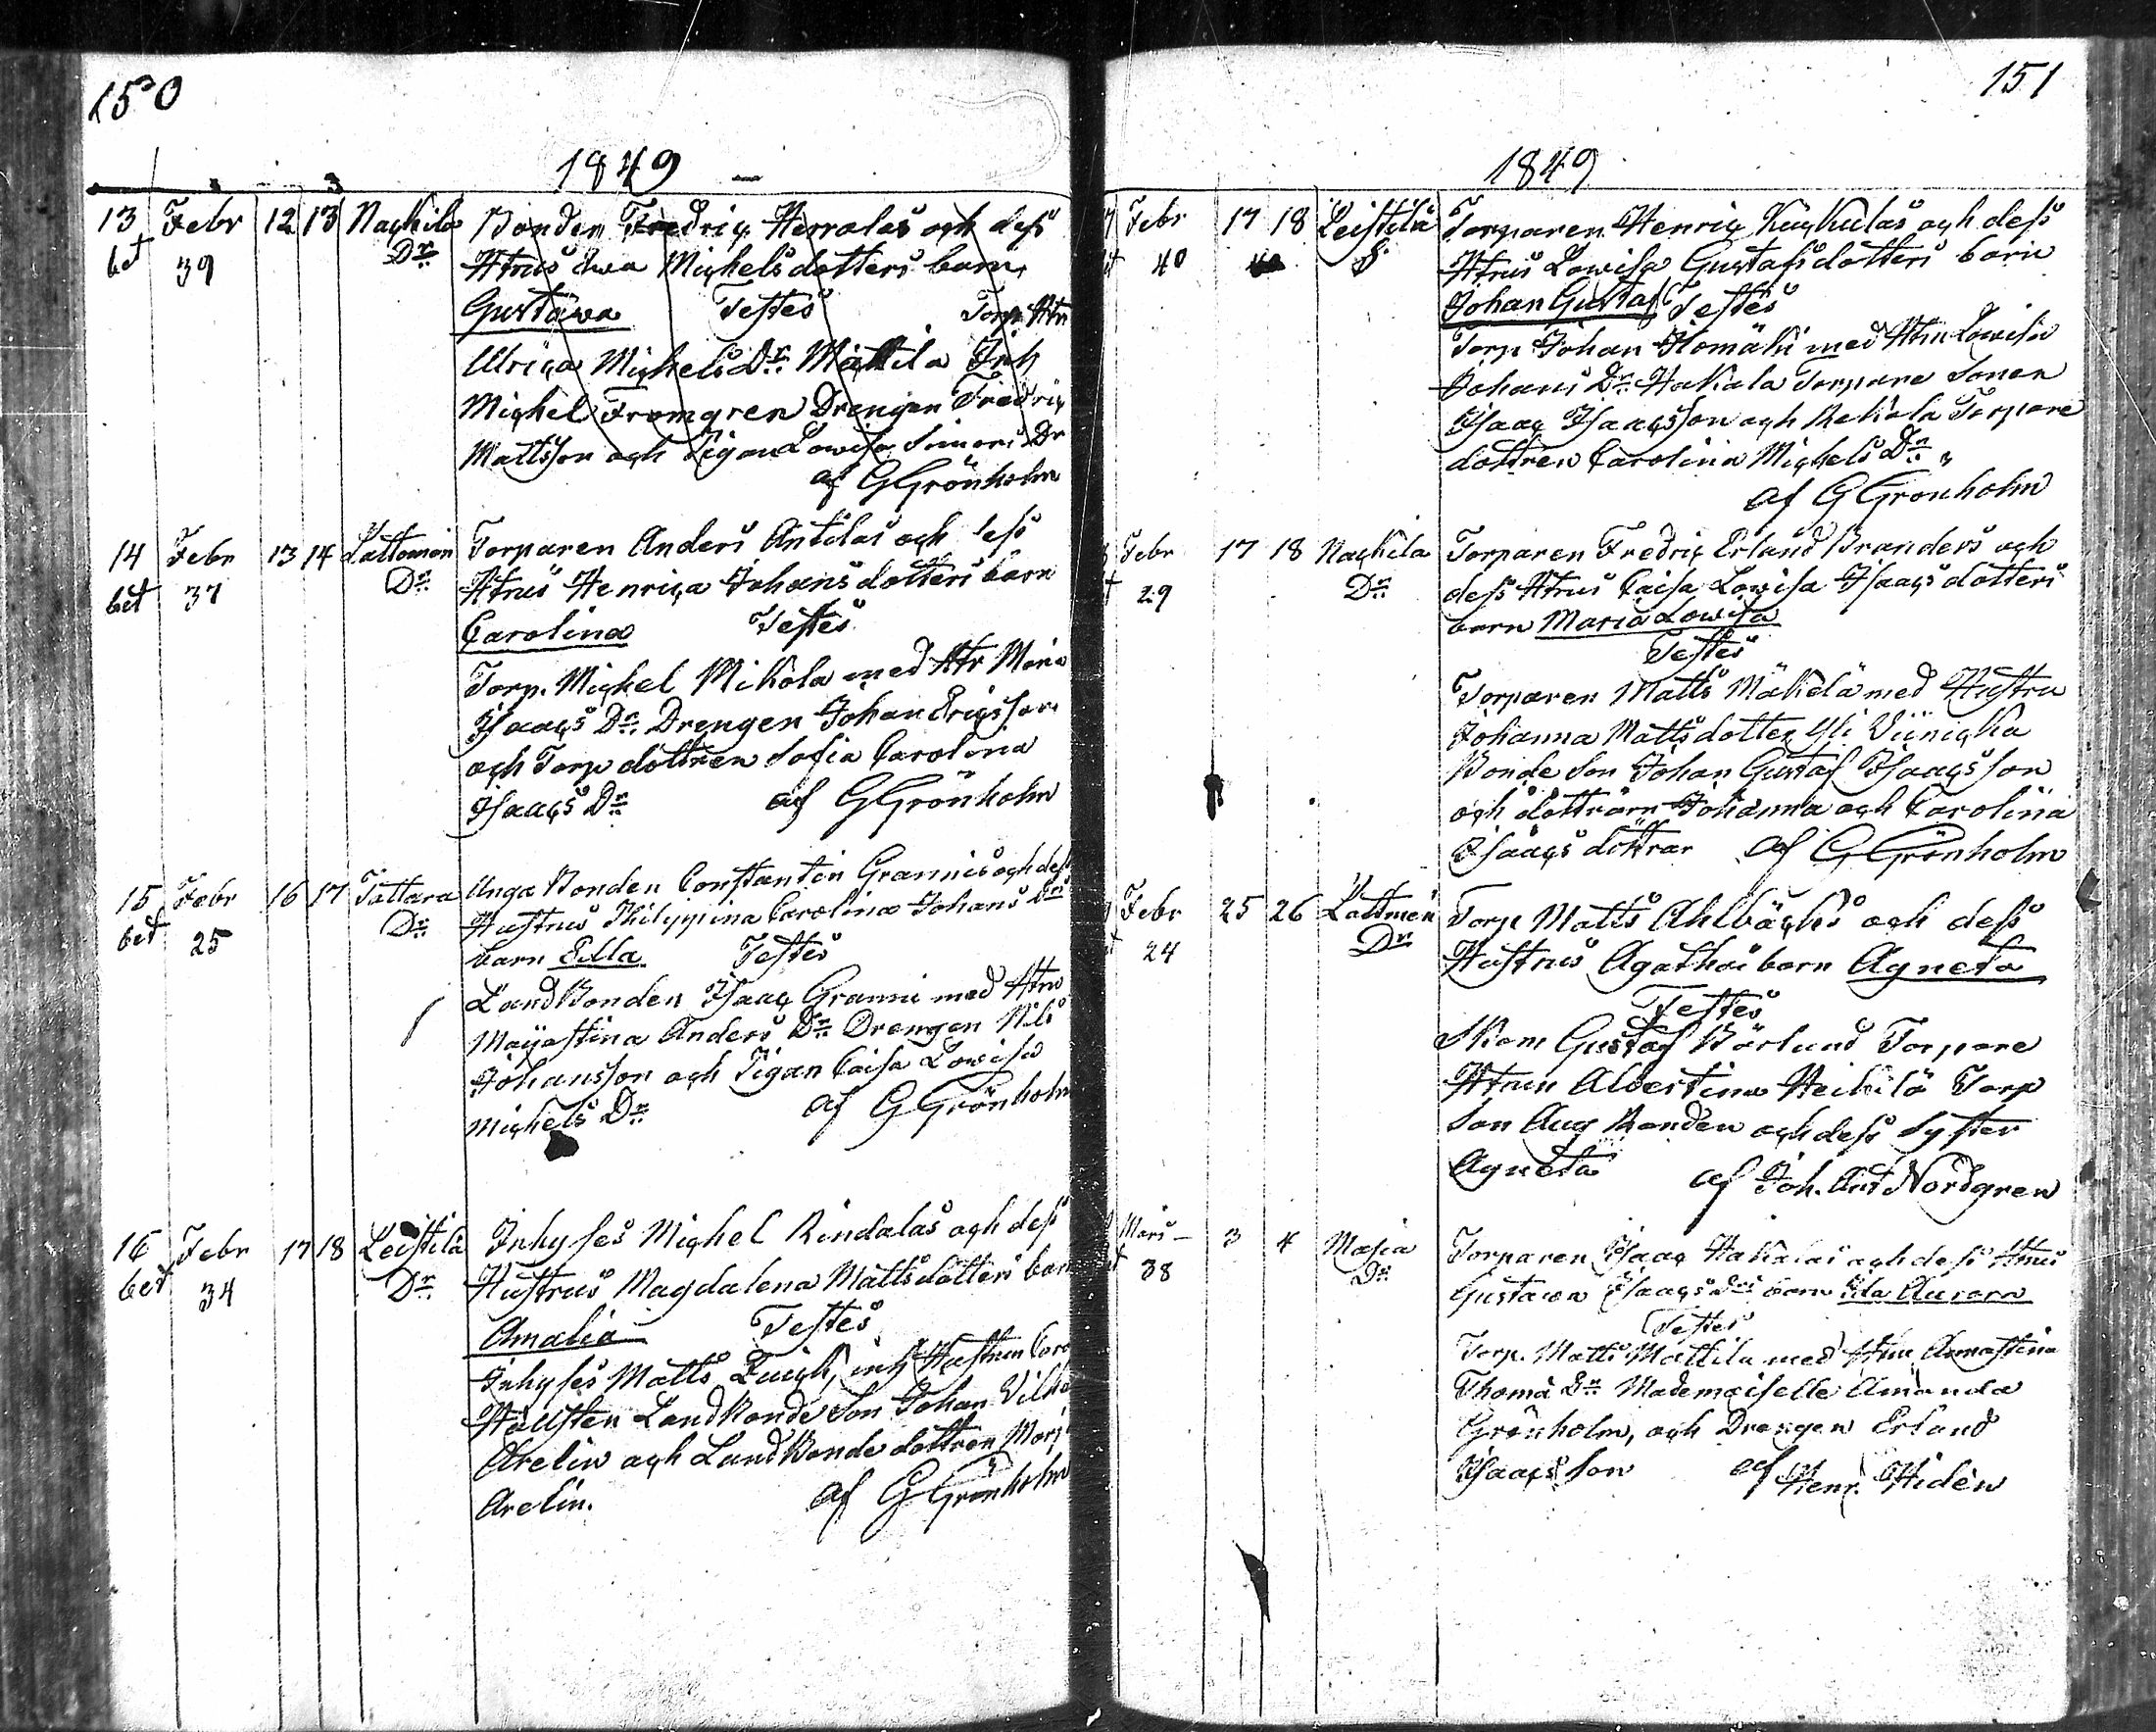 150
1849 –
13 Febr 12 13 Nackila Bonden Fredric Herralas och dess
bet 39 Dr. Htrus Ewa Michelsdotters barn
Gustawa Testes Torp. Htn
Ulrica Michels Dr. Mattila Inh
Michel Fromgren Drengen Fredric
Mattsson och Pigan Lowisa Simons Dr
af G Grönholm
14 Febr 13 14 Lattomeri Torparen Anders Antilas och dess
bet 37 Dr. Htrus Henrica Johansdotters barn
Carolina Testes
Torp. Michel Mikola med Htr Maria
Isaacs Dr. Drengen Johan Ericsson
och Torp dottren Sofia Carolina
Isaacs Dr. af G Grönholm
15 Febr 16 17 Tattara Unga Bonden Constantin Grannis och dess
bet 25 Dr. Hustrus Philippina Carolina Johans Drs
barn Edla Testes
LandBonden Isaac Granni med Htru
Majastina Anders Dr. Drengen Nils
Johansson och Pigan Caisa Lowisa
Michels Dr. af G Grönholm
16 Febr 17 18 Leistilä Inhyses Michel Rindalas och dess
bet 34 Dr. Hustrus Magdalena Mattsdotters barn
Amalia Testes
Inhyses Matts inh Hustrun Caro
Hällsten LandBonde Son Johan Vilhe
Arelin och LandBonde dottren Marj
Arelin. af G Grönholm
151
1849
Febr 17 18 Leistilä Torparen Henric Kuckulas och dess
40 S. Htrus Lowisa Gustafsdotters barn
Johan Gustaf Testes
Torp Johan Ilomäki med Htru Lowisa
Johans Dr. Hakala Torpare Sonen
Isaac Isaacsson och Rekola Torpare
dottren Carolina Michels Dr.
af G Grönholm
Febr 17 18 Nackila Torparen Fredric Erland Branders och
29 Dr. dess Htrus Caisa Lowisa Isaacsdotters
barn Maria Lowisa
Testes
Torparen Matts Mäkelä med Hustru
Johanna Mattsdotter Yli Viinicka
Bonde Son Johan Gustaf Isaacsson
och döttrarn Johanna och Carolina
Isaacs döttrar af G Grönholm
Febr 25 26 Lattomeri Torp Matts Ahlbäcks och dess
24 Dr. Hustrus Agathas barn Agneta
Testes
Skom Gustaf Bärlund Torpare
Htrun Albertina Heikilä Torp
Son Aug Randen och dess Syster
Agneta af Joh. Ant Nordgren
Mars – 3 4 Masia Torparen Isaac Hakalas och dess Htrus
38 Dr. Gustawa Isaacs Drs barn Ida Aurora
Testes
Torp. Matts Mattila med Htru Annastina
Thoma Dr. Mademoiselle Amanda
Grönholm, och Drengen Erland
Isaacsson af Henr. Hidén